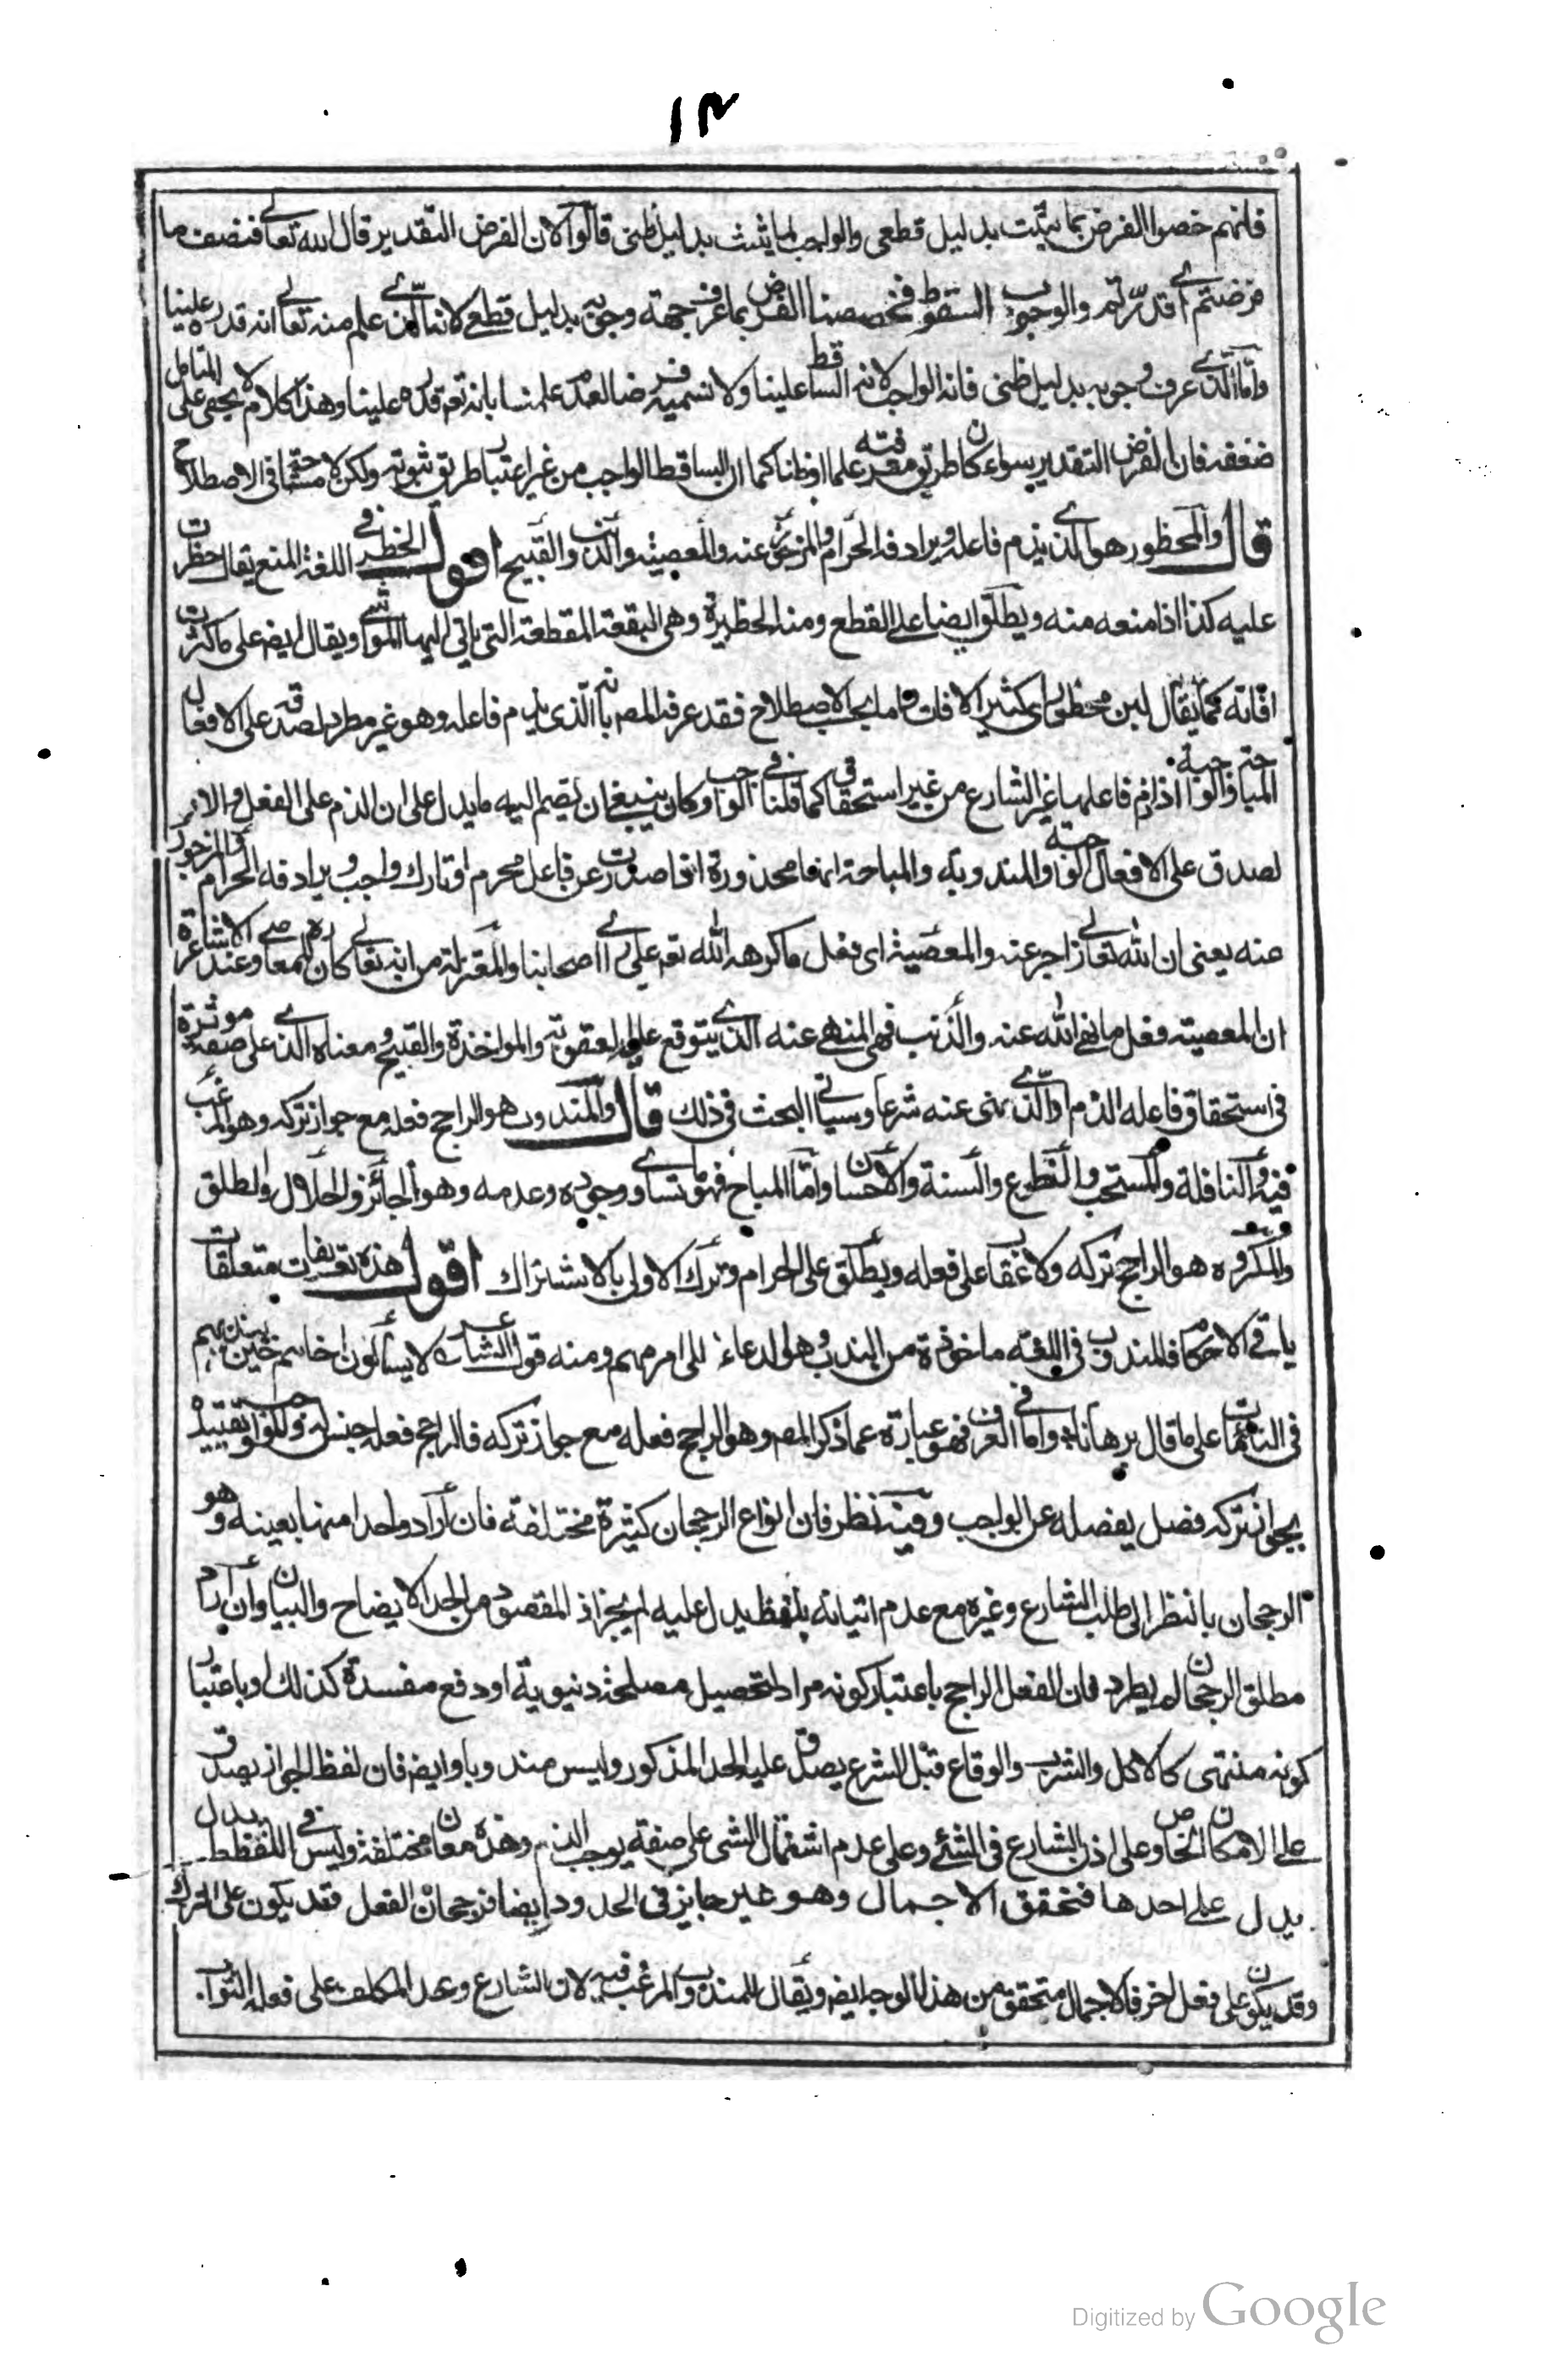 ١٢
فانهم خصوا الفرض بما يثبت بدليل قطعى والواجب لما يثبت بدليل ظنى قالوا لان الفرض التقدير قال الله تعالى فنصف ما
فرضتم اى قدرتم والوجوب السقوط فخصصنا الفرض بما عرف جهة وجوبه بدليل قطعى لانه الذى علم منه تعالى انه قدره علينا
واما الذى عرف وجوبه بدليل ظنى فانه الواجب لانه الساقط علينا ولا نسميه فرضا لعدم علمنا بانه تعم قدره علينا وهذا كلام لا يخفى على المتامل
ضعفه فان الفرض التقدير سواء كان طريق معرفته علما او ظنا كما ان الساقط الواجب من غير اعتبار طريق ثبوته ولكن لا مشاحة فى الاصطلاح
قال والمحظور هو الذى يذم فاعله ويرادفه الحرام والمزجور عنه والمعصية والذنب والقبيح اقول الحظر فى اللغة المنع يقال حظرت
عليه كذا اذا منعه منه ويطلق ايضا على القطع ومنه الحظيرة وهى البقعة المقطعة التى ياتى اليها المواشى ويقال ايضه على ما كثرت
افاته كما يقال لبن محظور اى كثير الافات واما بحسب الاصطلاح فقد عرفه المصه بانه الذى يذم فاعله وهو غير مطرد لصدقه على الافعال
المباحة والواجبة اذا ذم فاعلها غير الشارع من غير استحقاق كما قلنا فى الواجب وكان ينبغى ان يضم اليه ما يدل على ان الذم على الفعل والا
لصدق على الافعال الواجبة والمندوبة والمباحة انها محذورة اذا صدرت عن فاعل محرم او تارك واجب ويرادفه الحرام والمزجور
عنه يعنى ان الله تعالى زاجر عنه والمعصية اى فعل ما كرهه الله تعه على راى اصحابنا والمعتزلة من انه تعالى كاره للمعاصى وعند الاشاعرة
ان المعصية فعل ما نهى الله عنه والذنب فهى المنهى عنه الذى يتوقع عليه العقوبة والمواخذة والقبيح ومعناه الذى على صفة موثرة
فى استحقاق فاعله الذم او الذى نهى عنه شرعا وسياتى البحث فى ذلك قال والمندوب هو الراجح فعله مع جواز تركه وهو المرغب
فيه والنافلة والمستحب والتطوع والسنة والاحسان واما المباح فهو ما تساوى وجوده وعدمه وهو الجائز والحلال والطلق
والمكروه هو الراجح تركه ولا عقاب على فعله ويطلق على الحرام وترك الاولى بالاشتراك اقول هذه تعريفات متعلقات
باقى الاحكام فالمندوب فى اللغة ماخوذة من الندب وهو الدعاء الى امر مهم ومنه قول الشاعر لا يسألون اخاهم حين يندبهم
فى النائبات على ما قال برهانا واما فى العرف فهو عبارة عما ذكر المصه وهو الراجح فعله مع جواز تركه فالراجح فعله جنس له وللواجب وتقييده
بجواز تركه فصل يفصله عن الواجب وفيه نظر فان انواع الرجحان كثيرة مختلفة فان اراد واحدا منها بعينه وهو
الرجحان بالنظر الى طلب الشارع وغيره مع عدم اتيانه بلفظ يدل عليه لم يجز اذ المقصود من الحد الايضاح والبيان وان اراد
مطلق الرجحان لم يطرد فان الفعل الراجح باعتبار كونه مرادا لتحصيل مصلحة دنيوية او دفع مفسدة كذلك وباعتبار
كونه مشتهى كالاكل والشرب والوقاع قبل الشرع يصدق عليه الحد المذكور وليس مندوبا وايضه فان لفظ الجواز يصدق
على الامكان الخاص وعلى اذن الشارع فى الشئ وعلى عدم اشتمال الشى على صفة يوجب الذم وهذه معان مختلفة وليس فى اللفظ يدل
يدل على احدها فتحقق الاجمال وهو غير جايز فى الحدود وايضا فرجحان الفعل فقد يكون على الترك
وقد يكون على فعل اخر فالاجمال متحقق من هذا الوجه ايضه ويقال للمندوب المرغب فيه لان الشارع وعد المكلف على فعله الثواب
Digitized by Google